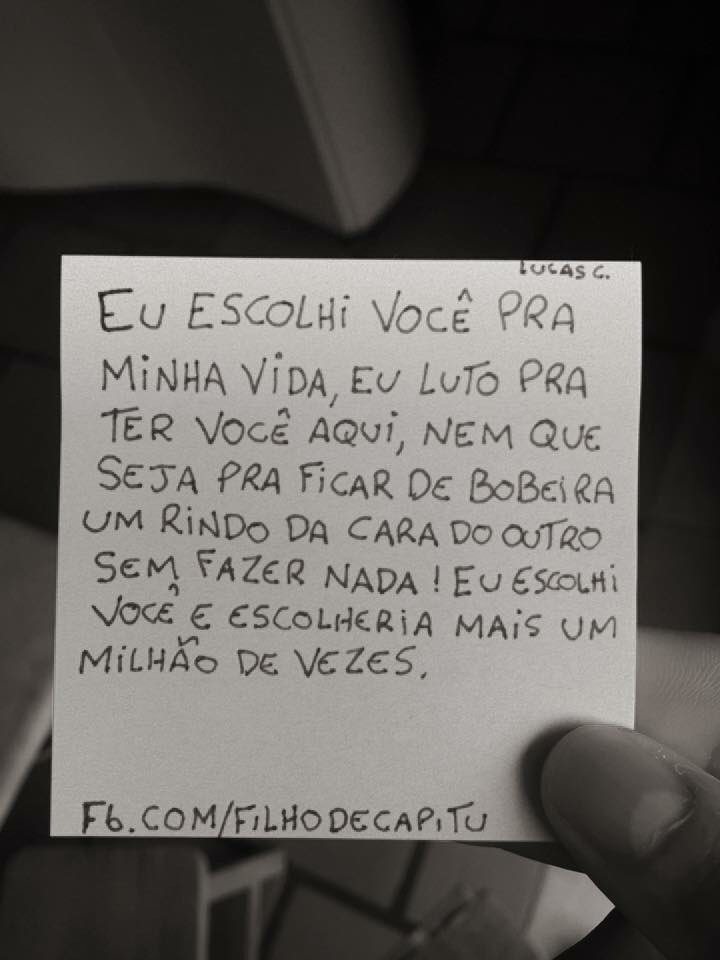 LUCAS C.
EU ESCOLHI VOCÊ PRA
MINHA VIDA, EU LUTO PRA
TER VOCÊ AQUI, NEM QUE
SEJA PRA FICAR DE BOBEIRA
UM RINDO DA CARA DO OUTRO
SEM FAZER NADA! EU ESCOLHI
VOCÊ E ESCOLHERIA MAIS UM
MILHÃO DE VEZES.
FB.COM/FILHODECAPITU